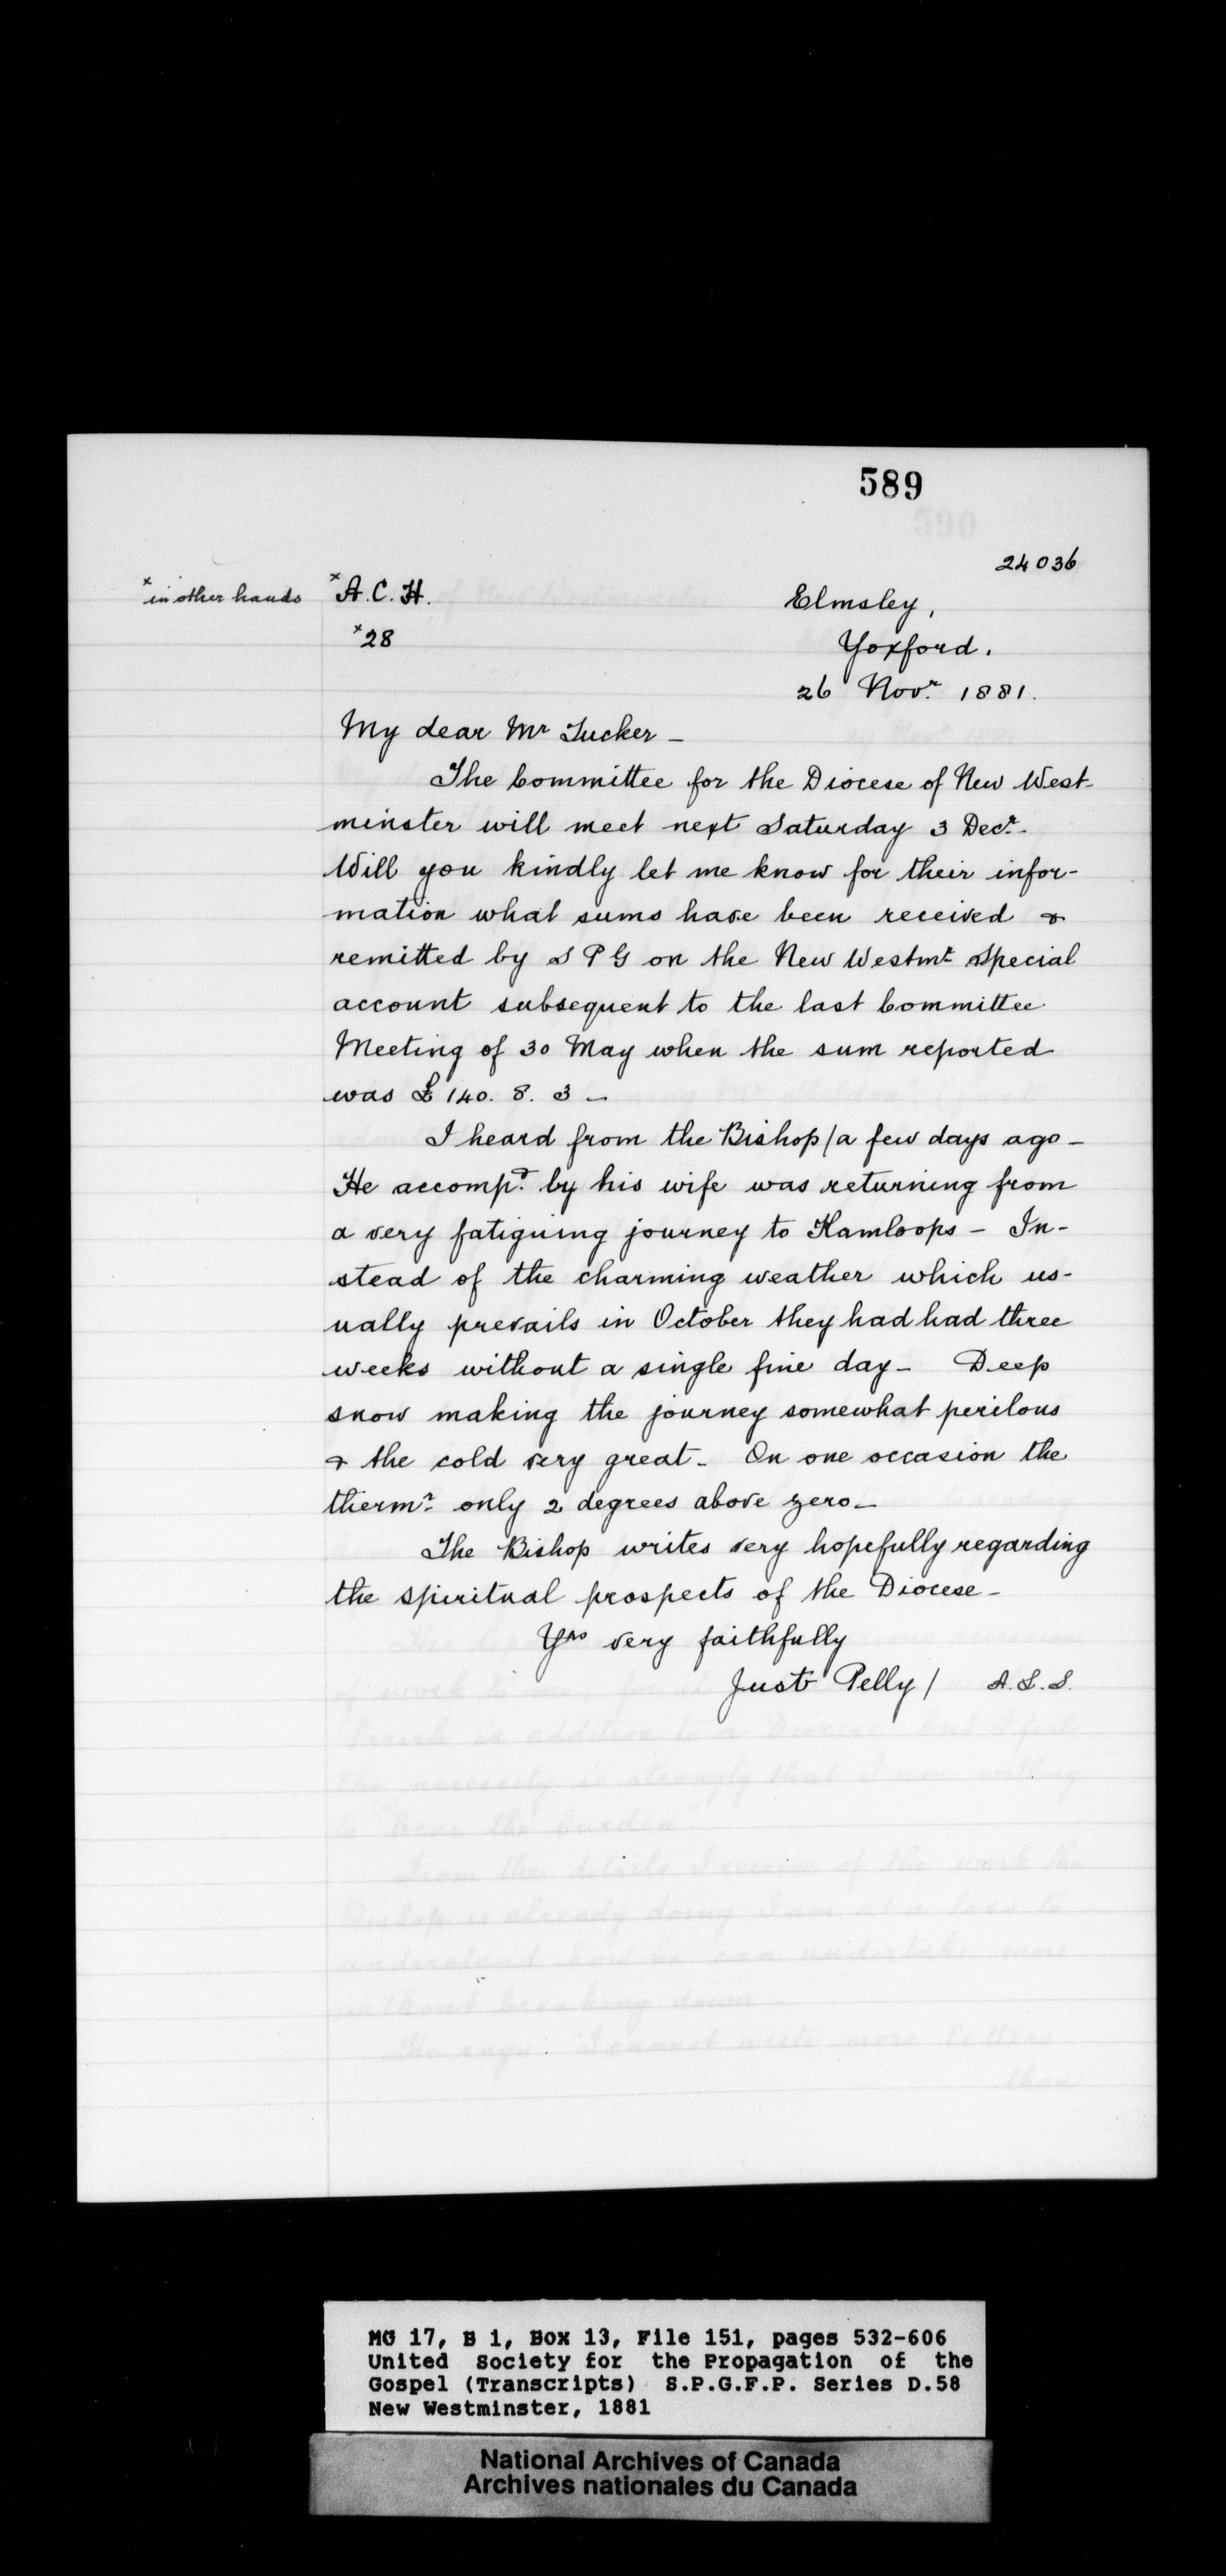 589
24036
x in other hands
x A. C. H.
Elmsley,
x 28
Yoxford.
26 Novr. 1881.
My dear Mr Tucker –
The Committee for the Diocese of New West-
minster will meet next Saturday 3 Decr. –
Will you kindly let me know for their infor-
mation what sums have been received &
remitted by S P G on the New Westmt Special
account subsequent to the last Committee
Meeting of 30 May when the sum reported
was £ 140. 8. 3 –
I heard from the Bishop / a few days ago –
He accompd. by his wife was returning from
a very fatiguing journey to Kamloops – In-
stead of the charming weather which us-
ually prevails in October they had had three
weeks without a single fine day – Deep
snow making the journey somewhat perilous
& the cold very great – On one occasion the
thermr. only 2 degrees above zero –
The Bishop writes very hopefully regarding
the spiritual prospects of the Diocese –
Yrs very faithfully
Just Pelly / A.L.S.
MG 17, B 1, Box 13, File 151, pages 532-606
United Society for the Propagation of the
Gospel (Transcripts) S.P.G.F.P. Series D.58
New Westminster, 1881
National Archives of Canada
Archives nationales du Canada